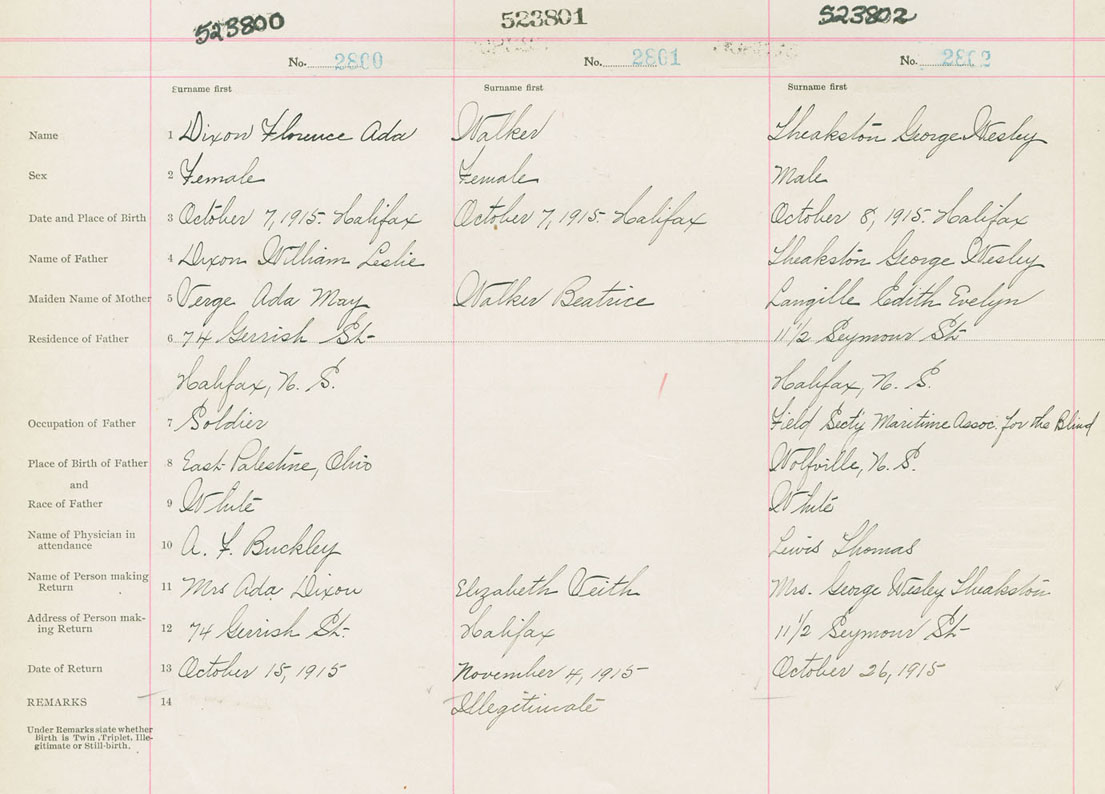 523800 523801 523802
No. 2800 No. 2801 No. 2802
Surname first Surname first Surname first
Name 1 Dixon Florence Ada Walker Theakston George Wesley
Sex 2 Female Female Male
Date and Place of Birth 3 October 7, 1915 - Halifax October 7, 1915 - Halifax October 8, 1915 - Halifax
Name of Father 4 Dixon William Leslie Theakston George Wesley
Maiden Name of Mother 5 Verge Ada May Walker Beatrice Langille Edith Evelyn
Residence of Father 6 74 Gerrish St- 11 1/2 Seymour St-
Halifax, N. S. Halifax, N. S.
Occupation of Father 7 Soldier Field Secty Maritime Assoc. for the Blind
Place of Birth of Father 8 East Palestine, Ohio Wolfville, N. S.
and
Race of Father 9 White White
Name of Physician in
attendance 10 A. F. Buckley Lewis Thomas
Name of Person making
Return 11 Mrs Ada Dixon Elizabeth Veith Mrs. George Wesley Theakston
Address of Person mak-
ing Return 12 74 Gerrish St. Halifax 11 1/2 Seymour St-
Date of Return 13 October 15, 1915 November 4, 1915 October 26, 1915
REMARKS 14 Illegitimate
Under Remarks state whether
Birth is Twin, Triplet, Ille-
gitimate or Still-birth.